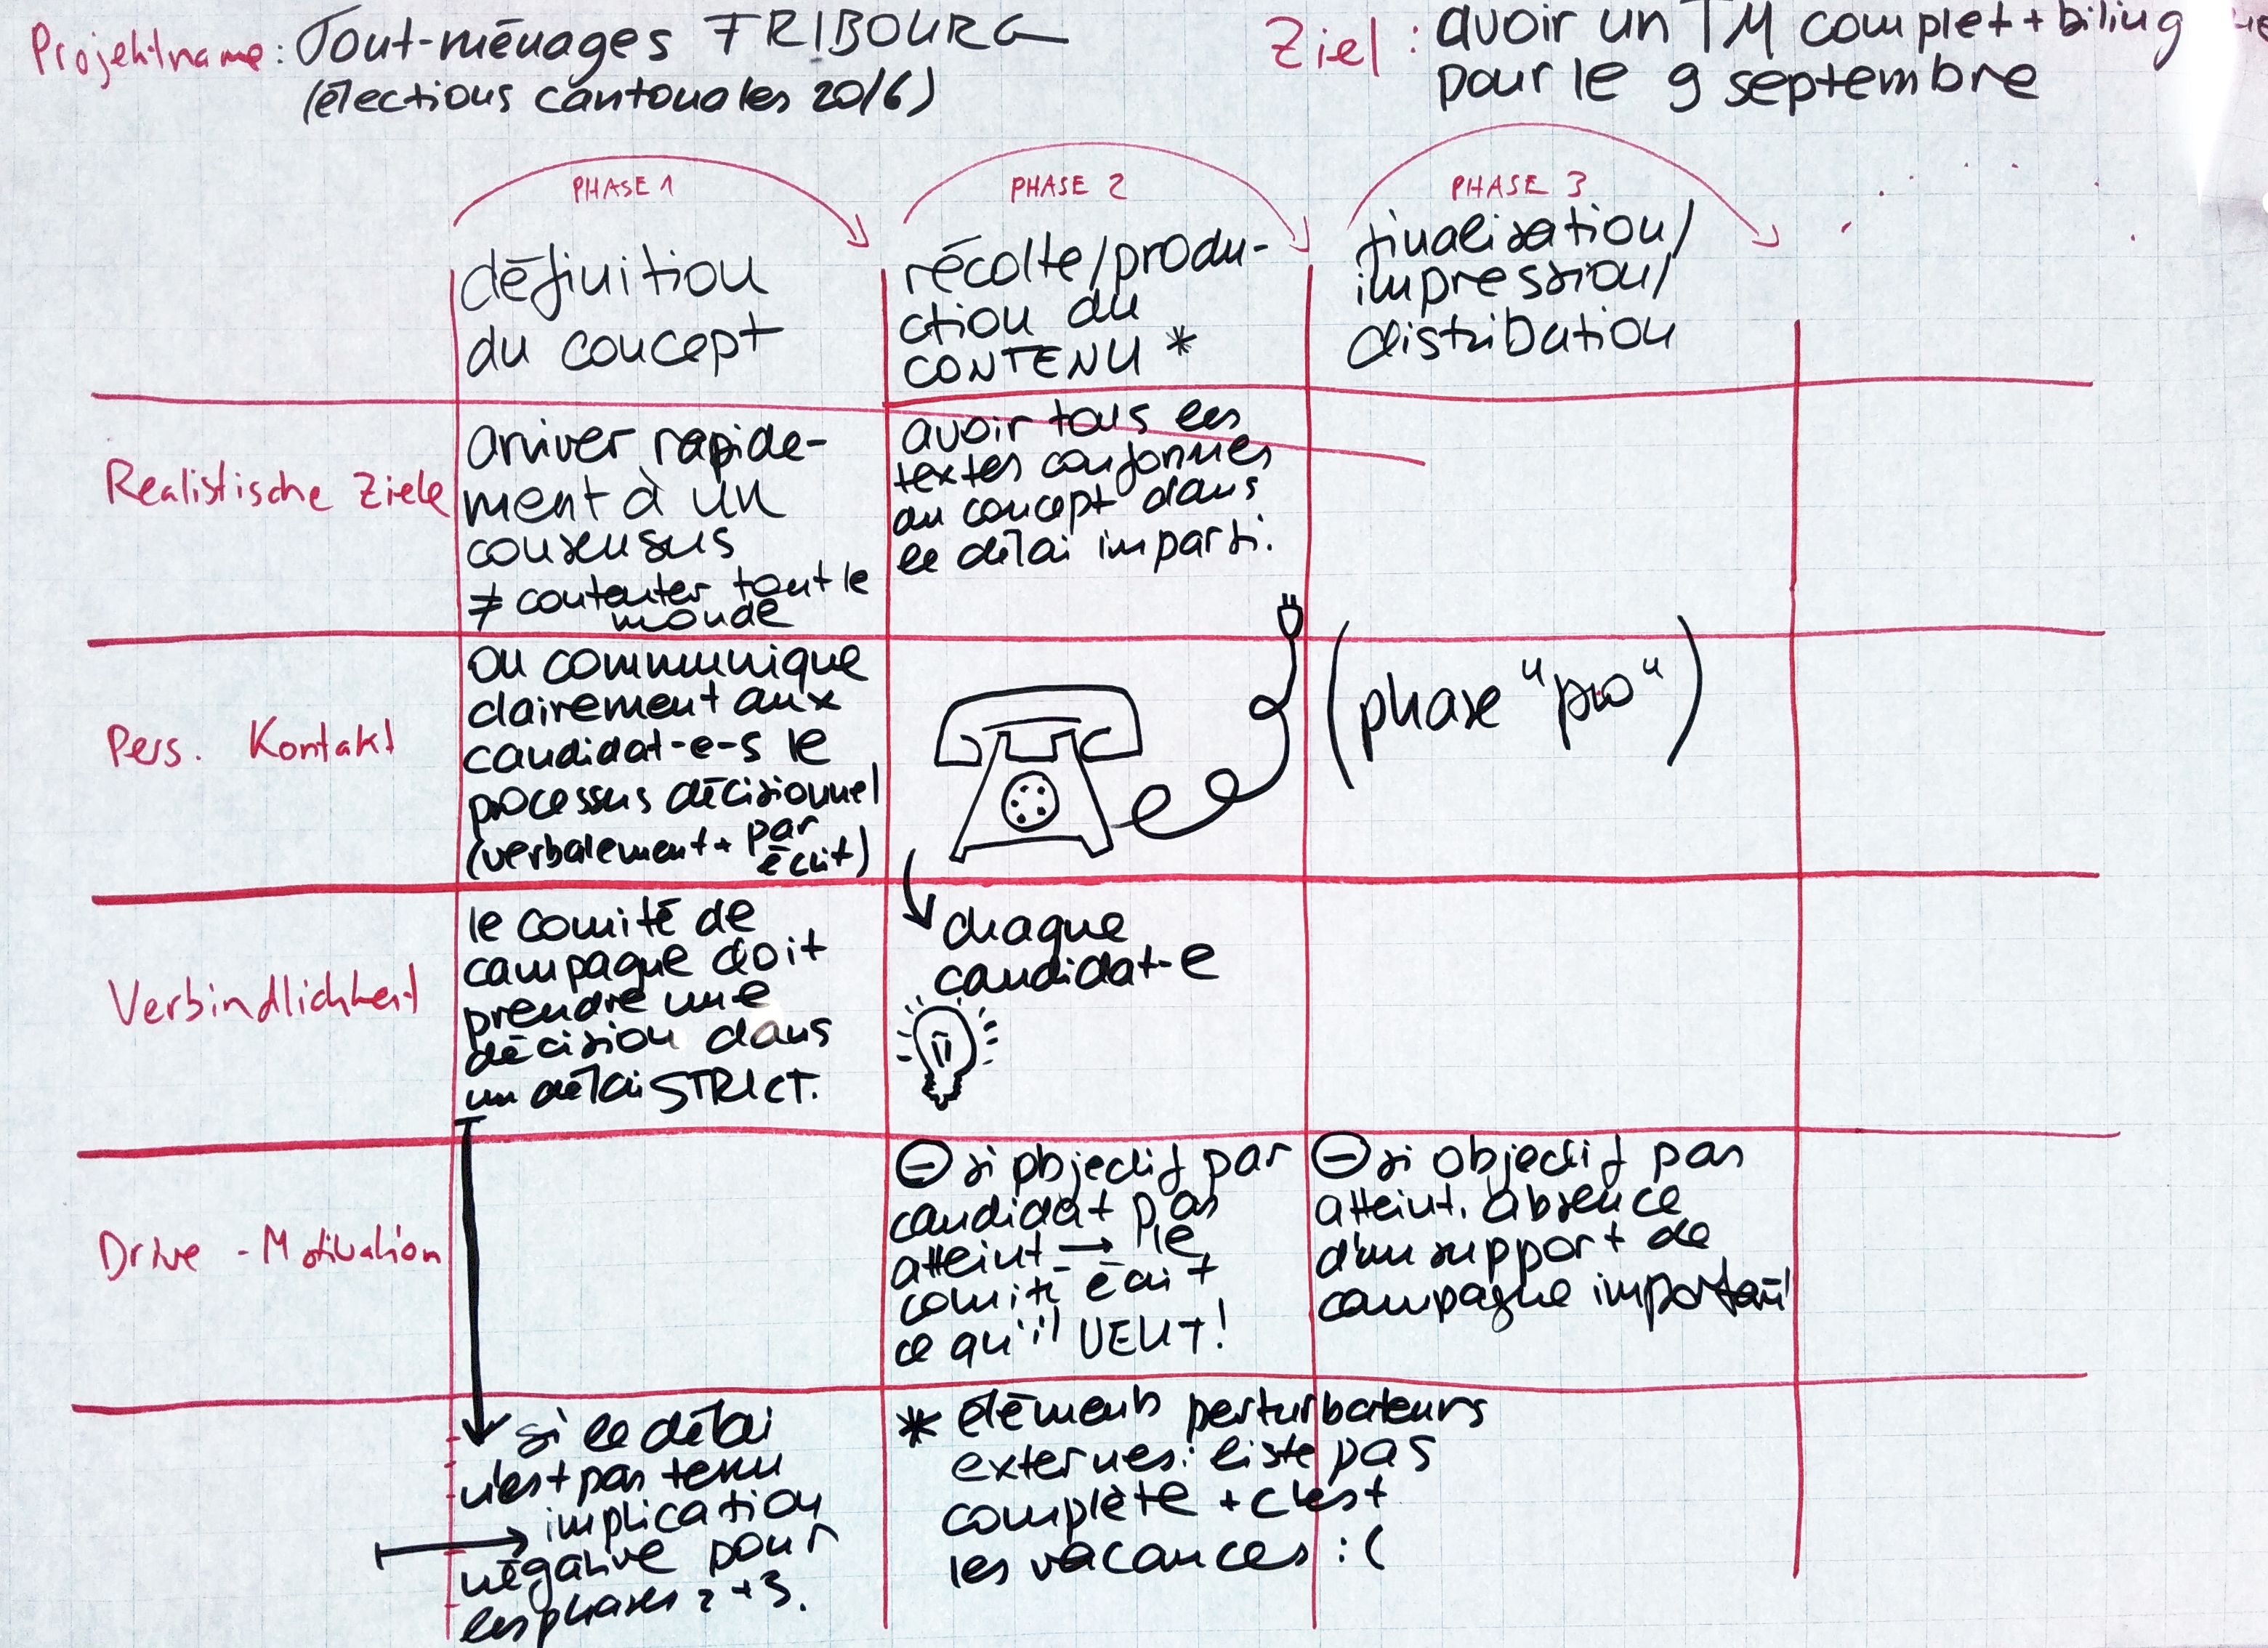 Projektname: Tout-ménages FRIBOURG
(élections cantonales 2016)
Ziel: avoir un TM complet + biling
pour le 9 septembre
PHASE 1
PHASE 2
PHASE 3
définition
du concept
récolte/produ-
ction du
CONTENU *
finalisation/
impression/
distribution
Realistische Ziele
arriver rapide-
ment à un
consensus
≠ contenter tout le
monde
avoir tous les
textes conformes
au concept dans
le délai imparti.
Pers. Kontakt
on communique
clairement aux
candidat-e-s le
processus décisionnel
(verbalement + par
écrit)
(phase "pro")
Verbindlichkeit
le comité de
campagne doit
prendre une
décision dans
un délai STRICT.
chaque
candidat-e
Drive - Motivation
⊖ si objectif par
candidat pas
atteint → le
comité écrit
ce qu'il VEUT!
⊖ si objectif pas
atteint. absence
d'un support de
campagne important
si le délai
n'est pas tenu
→ implication
négative pour
les phases 2 + 3.
* éléments perturbateurs
externes: liste pas
complète + c'est
les vacances :(